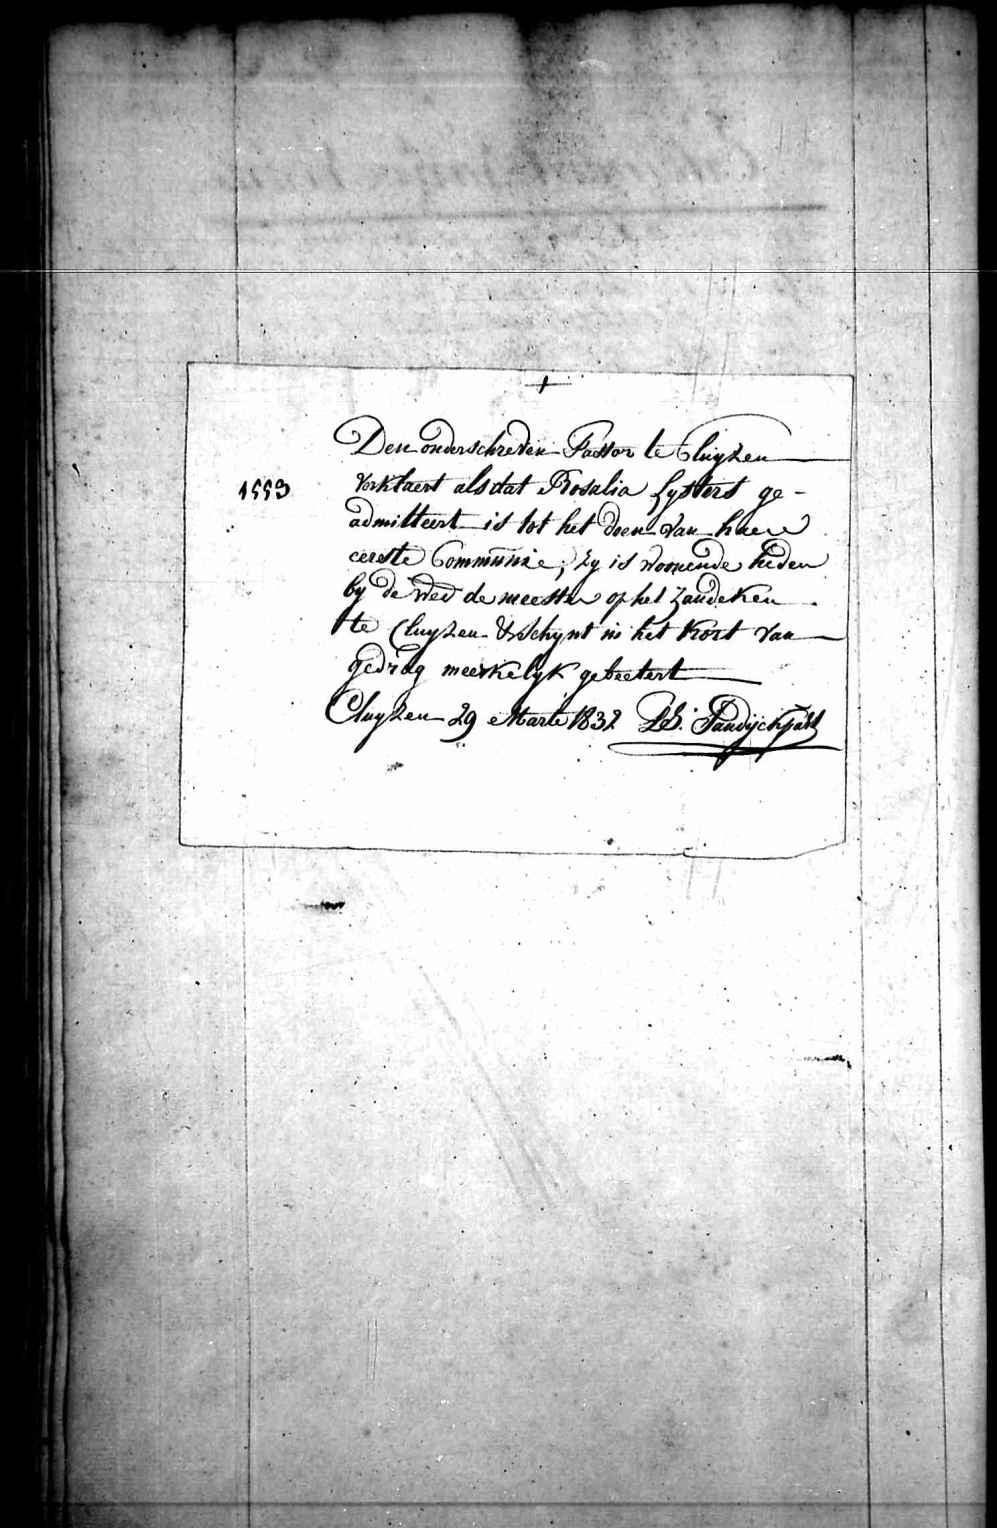 +
Den onderschreden Pastor te Cluyzen
1553
verklaert als dat Rosalia Lysters ge-
admitteert is tot het doen van haere
eerste Communie, zy is woonende heden
by de Wed de meester op het Zandeken
te Cluyzen & schynt in het kort van
gedrag meerkelyk gebeetert
Cluyzen 29 Marte 1832